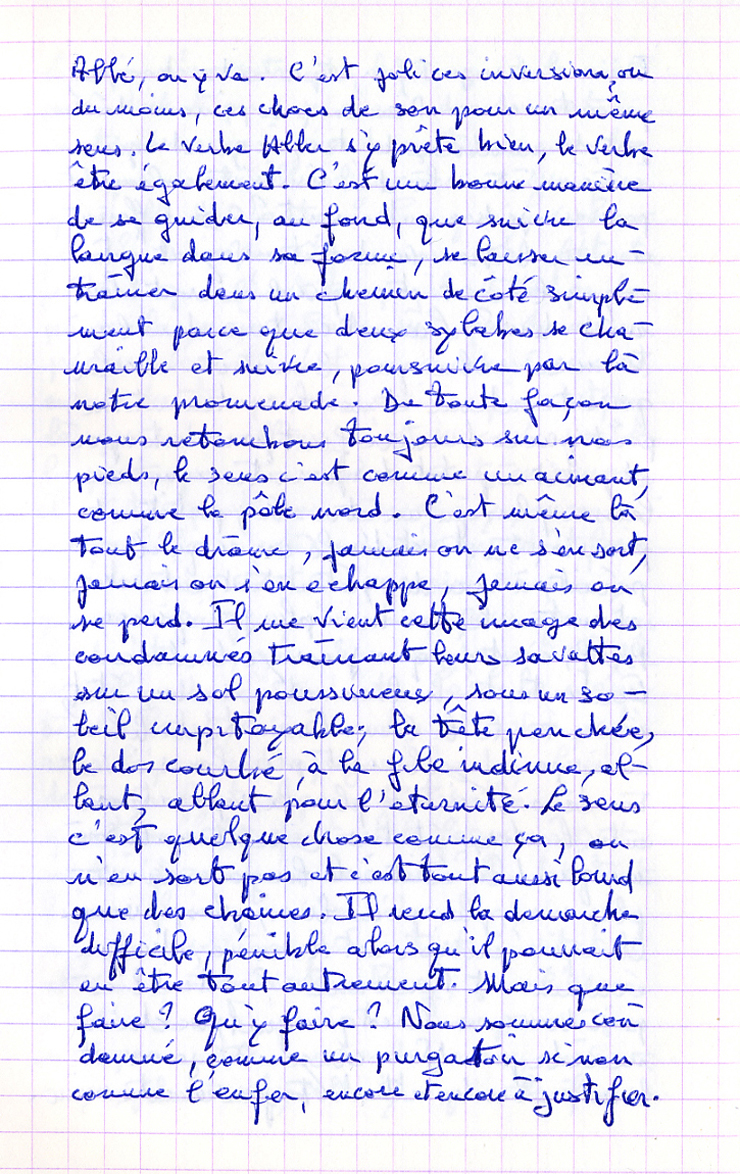 Allé, on y va. C'est joli ces inversions, ou
du moins, ces chocs de son pour un même
sens. Le verbe Aller s'y prête bien, le verbe
être également. C'est une bonne manière
de se guider, au fond, que suivre la
langue dans sa forme, se laisser en-
traîner dans un chemin de côté simple-
ment parce que deux sylabes se cha-
maille et suivre, poursuivre par là
notre promenade. De toute façon
nous retombons toujours sur nos
pieds, le sens c'est comme un aimant,
comme le pôle nord. C'est même là
tout le drâme, jamais on ne s'en sort,
jamais on s'en echappe, jamais on
se perd. Il me vient cette image des
condamnés traînant leurs savattes
sur un sol poussiereux, sous un so-
leil impitoyable; la tête penchée,
le dos courbé, à la file indinne, al-
lant, allant pour l'eternité. Le sens
c'est quelque chose comme ça, on
n'en sort pas et c'est tout aussi lourd
que des chaînes. Il rend la demarche
difficile, pénible alors qu'il pourrait
en être tout autrement. Mais que
faire ? Qu'y faire ? Nous sommes con
damné, comme un purgatoir sinon
comme l'enfer, encore et encore à justifier.